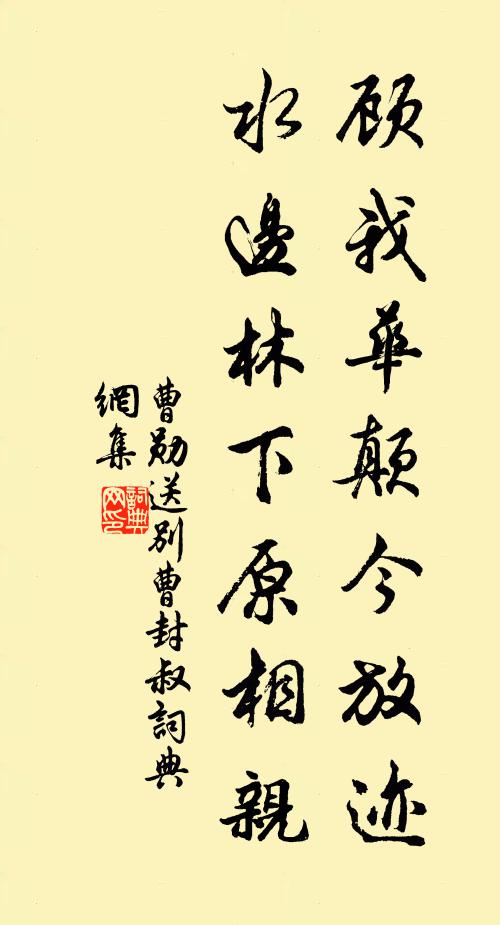 顾我华颠今放迹
水邊林下原相親
曹勋送别曹封叔詞典
網集
詞典网印